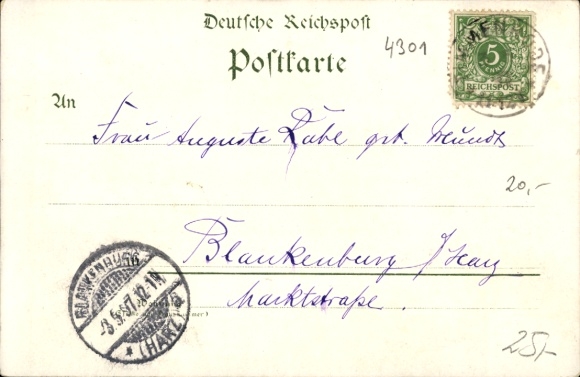 Deutsche Reichspost
Postkarte
4301
5
PFENNIG
REICHSPOST
An
Frau Auguste geb. Mundt
20,-
Blankenburg / Harz
Marktstraße.
BLANKENBURG
(HARZ)
25,-